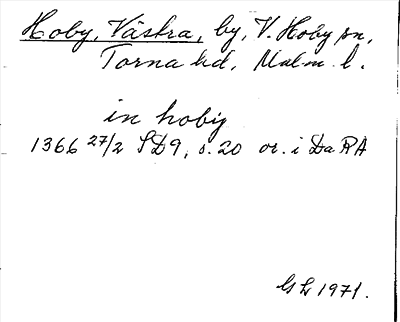 Hoby, Västra, by, V. Hoby sn,
Torna hd, Malm. l.
in hoby
1366 27/2 SD9, s. 20 or. i Da RA
GL 1971.